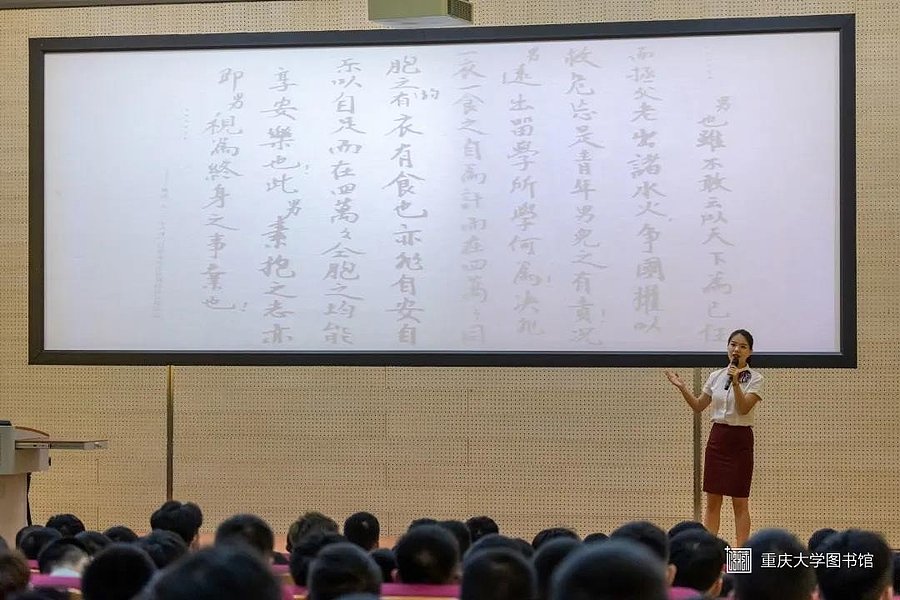 男也雖不敢云以天下為己任
而拯父老出諸水火爭國權以
救危亡是青年男兒之有責況
男遠出留學所學何為決非
一衣一食之自為計而在四萬萬同
胞之均有衣有食也亦非自安自
足以自足而在四萬萬同胞之均能
享安樂也此男素抱之志亦
即男視為終身之事業也
重庆大学图书馆